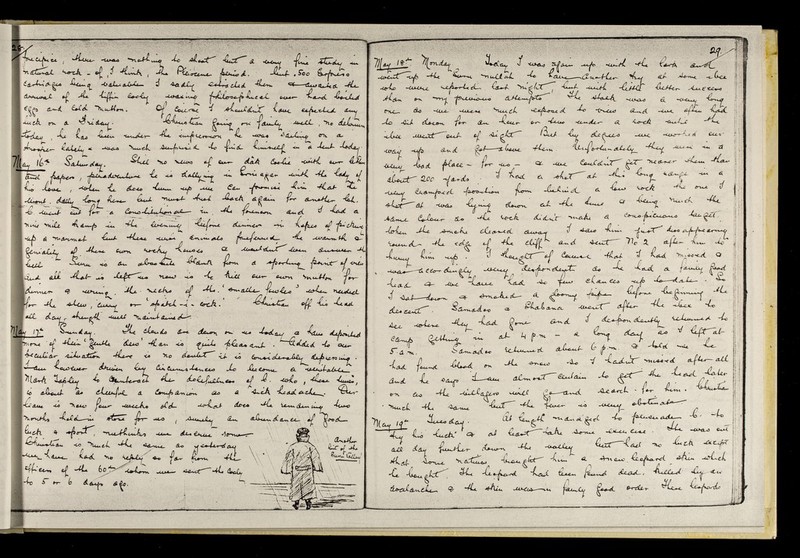 28
precipice, there was nothing to shoot but a very fine study in
natural rock - of, I think, the Pliocene period. but, 500 Express
cartridges being valuable I sadly extracted them & awaited the
arrival of the tiffin cooly waxing philosophical over hard boiled
eggs and cold mutton. Of course I shouldn't have expected any
luck on a Friday. Christian going on fairly well. no delirium
today, he has been under the impression he was sailing on a
lately & was much surprised to find himself in a tent today
May 16th Saturday. Still no news of our dâk cooly with our
and papers, peradventure he is dallying in Srinagar with the lady of
his love, when he does turn up we can promise him that he
wont dally long here but must trek back again for another lot.
C. went out for a constitutional in the forenoon and I had a
nine mile tramp in the evening before dinner in hopes of picking
up a marmot but these animals preferred the warmth &
geniality of there own rocky houses & wouldn't even answer the
bell. Seven was an absolute blank from a sporting point of view
and all that is left us now is to kill our own mutton for
dinner & wring the necks of the 'smaller fowles' when needed
for the stew, curry or 'spatch-cock.' Christian off his head
all day, strength well maintained.
May 17th Sunday. The clouds are down on us today & have deposited
more of their 'gentle dew' than is quite pleasant. Added to our
peculiar situation there is no doubt it is considerably depressing.
I am however driven by circumstances to become a veritable
Mark Tapley to counteract the dolefullness of C. who, these times,
is about as cheerful a companion as a sick headache. Our
team is now four weeks old what does the remaining two
months hold in store for us, surely an abundance of good
luck & sport, methinks we deserve some
Christian is much the same as yesterday
we have had no reply so far from the
officers of the 60th whom we sent the cooly
to 5 or 6 days ago.
Another
bit of the
29
May 18th Monday Today I was again up with the lark and
went up the home nullah to have another try at some ibex
who were reported last night but with little better success
than on my previous attempts. The stalk was a very long
one as we were much exposed to view and we often had
to sit down for an hour or two under a rock until the
ibex went out of sight But by degrees we worked our
way up and got above them Unfortunately they were in a
very bad place - for us - as we couldn't get nearer them than
about 200 yards I had a shot at this long range in a
very cramped position from behind a low rock the one I
shot at was lying down at the time & being much the
same colour as the rock didn't make a conspicuous target.
When the smoke cleared away I saw him just disappearing
round the edge of the cliff and sent No 2 after him to
hurry him up. I thought of course that I had missed &
was accordingly very despondent as he had a fairly good
head & we have had so few chances up to date. So
I sat down & smoked a gloomy pipe before beginning the
descent. Samadoo & Chabana went after the ibex to
see where they had gone and I despondently returned to
camp getting in at 4 pm - a long day as I left at
5 am. Samadoo returned about 6 pm & told me he
had found blood on the snow so I hadn't missed after all
and he says I am almost certain to get the head later
on as the villagers will go and search for him. Christian
much the same but the fever is very obstinate
May 19th Tuesday. At length managed to persuade C. to
try his luck & at least take some exercise. He was out
all day further down the valley but had no luck except
that some natives brought him a snow leopard skin which
he bought. The leopard had been found dead. killed by an
avalanche & the skin was in fairly good order These leopards